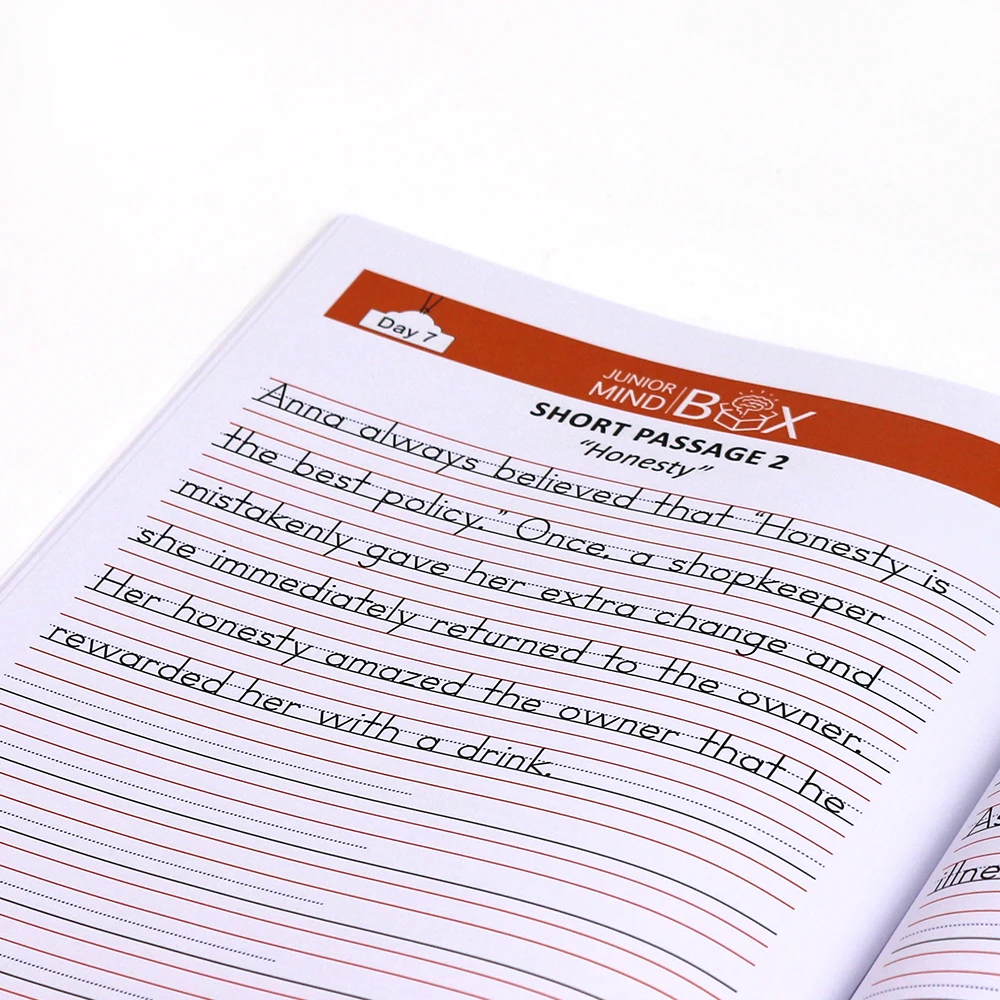 Day 7
JUNIOR
MIND BOX
SHORT PASSAGE 2
"Honesty"
Anna always believed that "Honesty is
the best policy." Once, a shopkeeper
mistakenly gave her extra change and
she immediately returned to the owner.
Her honesty amazed the owner that he
rewarded her with a drink.